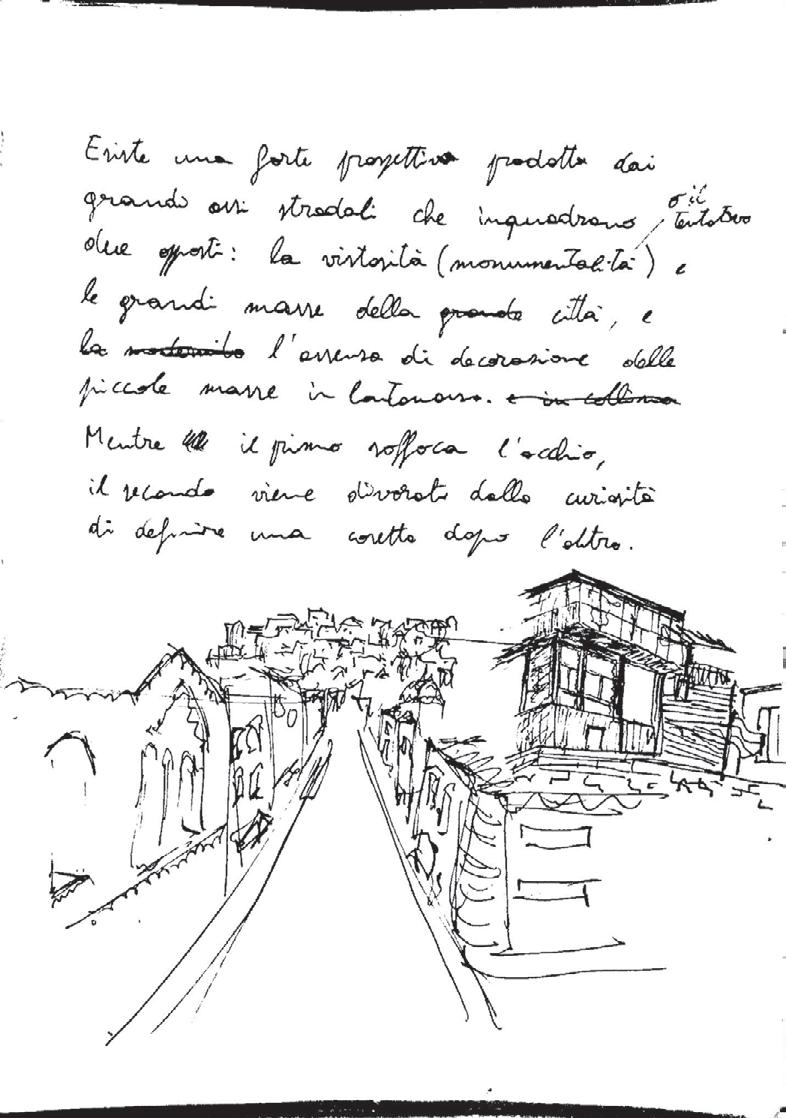 Esiste una forte prospettiva prodotta dai
grandi assi stradali che inquadrano o il tentativo
due opposti: la vistosità (monumentalità) e
le grandi masse della grande città, e
la modernità l'assenza di decorazione delle
piccole masse in lontananza. e in collina
Mentre il primo soffoca l'occhio,
il secondo viene divorato dalla curiosità
di definire una casetta dopo l'altra.